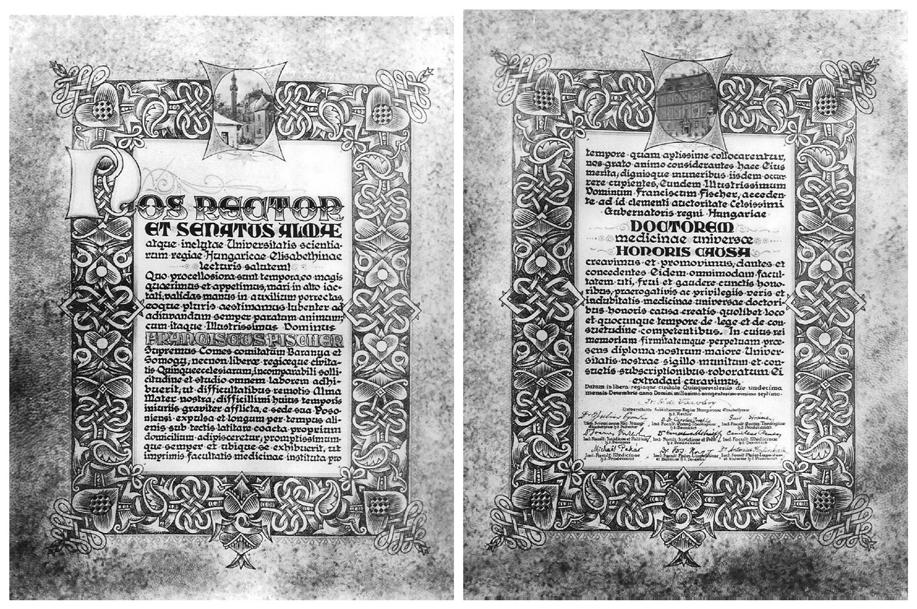 NOS RECTOR
ET SENATUS ALMÆ
atque inclytae Universitatis scientia-
rum regiae Hungaricae Elisabethinae
lecturis salutem!
Quo procellosiora sunt tempora, eo magis
quaerimus et appetimus, mari in alto iac-
tati, validas manus in auxilium porrectas,
eoque pluris aestimamus lubenter ad
adiuvandum semper paratum animum,
cum itaque Illustrissimus Dominus
FRANCISCUS FISCHER
Supremus Comes comitatuum Baranya et
Somogy, necnon liberae regiaeque civita-
tis Quinqueecclesiarum, incomparabili solli-
citudine et studio omnem laborem adhi-
buerit, ut difficultatibus remotis Alma
Mater nostra, difficillimi huius temporis
iniuriis graviter afflicta, e sede sua Poso-
niensi expulsa et longum per tempus ali-
enis sub tectis latitare coacta proprium
domicilium adipisceretur, promptissimum-
que semper et ubique se exhibuerit, ut
imprimis facultatis medicinae instituta pro
tempore quam aptissime collocarentur,
nos grato animo considerantes haec Eius
merita, dignisque muneribus iisdem occur-
rere cupientes, Eundem Illustrissimum
Dominum Franciscum Fischer, acceden-
te ad id clementi auctoritate Celsissimi
Gubernatoris regni Hungariae
DOCTOREM
medicinae universæ
HONORIS CAUSA
creavimus et promovimus, dantes et
concedentes Eidem omnimodam facul-
tatem uti, frui et gaudere cunctis hono-
ribus, praerogativis ac privilegiis veris et
indubitatis medicinae universae doctori-
bus honoris causa creatis quolibet loco
et quocunque tempore de lege et de con-
suetudine competentibus. In cuius rei
memoriam firmitatemque perpetuam præ-
sens diploma nostrum maiore Univer-
sitatis nostrae sigillo munitum et con-
suetis subscriptionibus roboratum Ei
extradari curavimus.
Datum in libera regiaque civitate Quinqueecclesiis die undecima
mensis Decembris anno Domini millesimo
Universitatis Scientiarum Regiae Hungaricae Elisabethinae